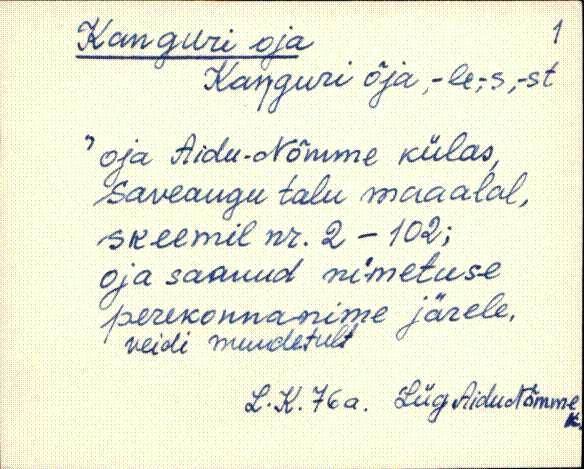 1
Kanguri oja
Kanguri õja, -le, -s, -st
" oja Aidu-Nõmme külas,
Saveaugu talu maaalal,
skeemil nr. 2 - 102;
oja saanud nimetuse
perekonnanime järele.
veidi muudetult
L.K. 76a. Lüg Aidu Nõmme
k.